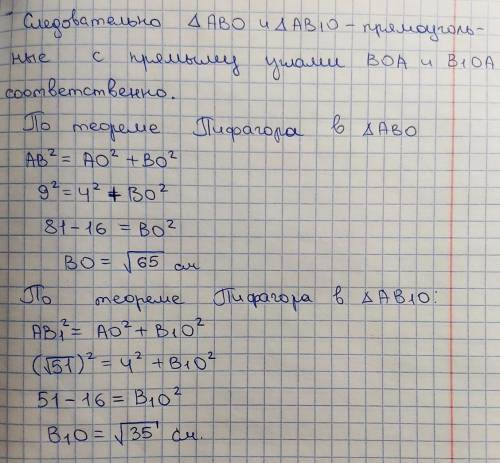 Следовательно ΔABO и ΔAB1O - прямоуголь-
ные с прямыму углами BOA и B1OA
соответственно.
По теореме Пифагора в ΔABO
AB² = AO² + BO²
9² = 4² + BO²
81 - 16 = BO²
BO = √65 см
По теореме Пифагора в ΔAB1O:
AB₁² = AO² + B1O²
(√51)² = 4² + B1O²
51 - 16 = B1O²
B1O = √35 см.